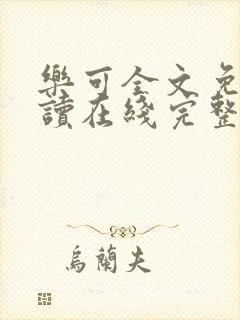 樂可全文免
讀在綫完整
烏蘭夫